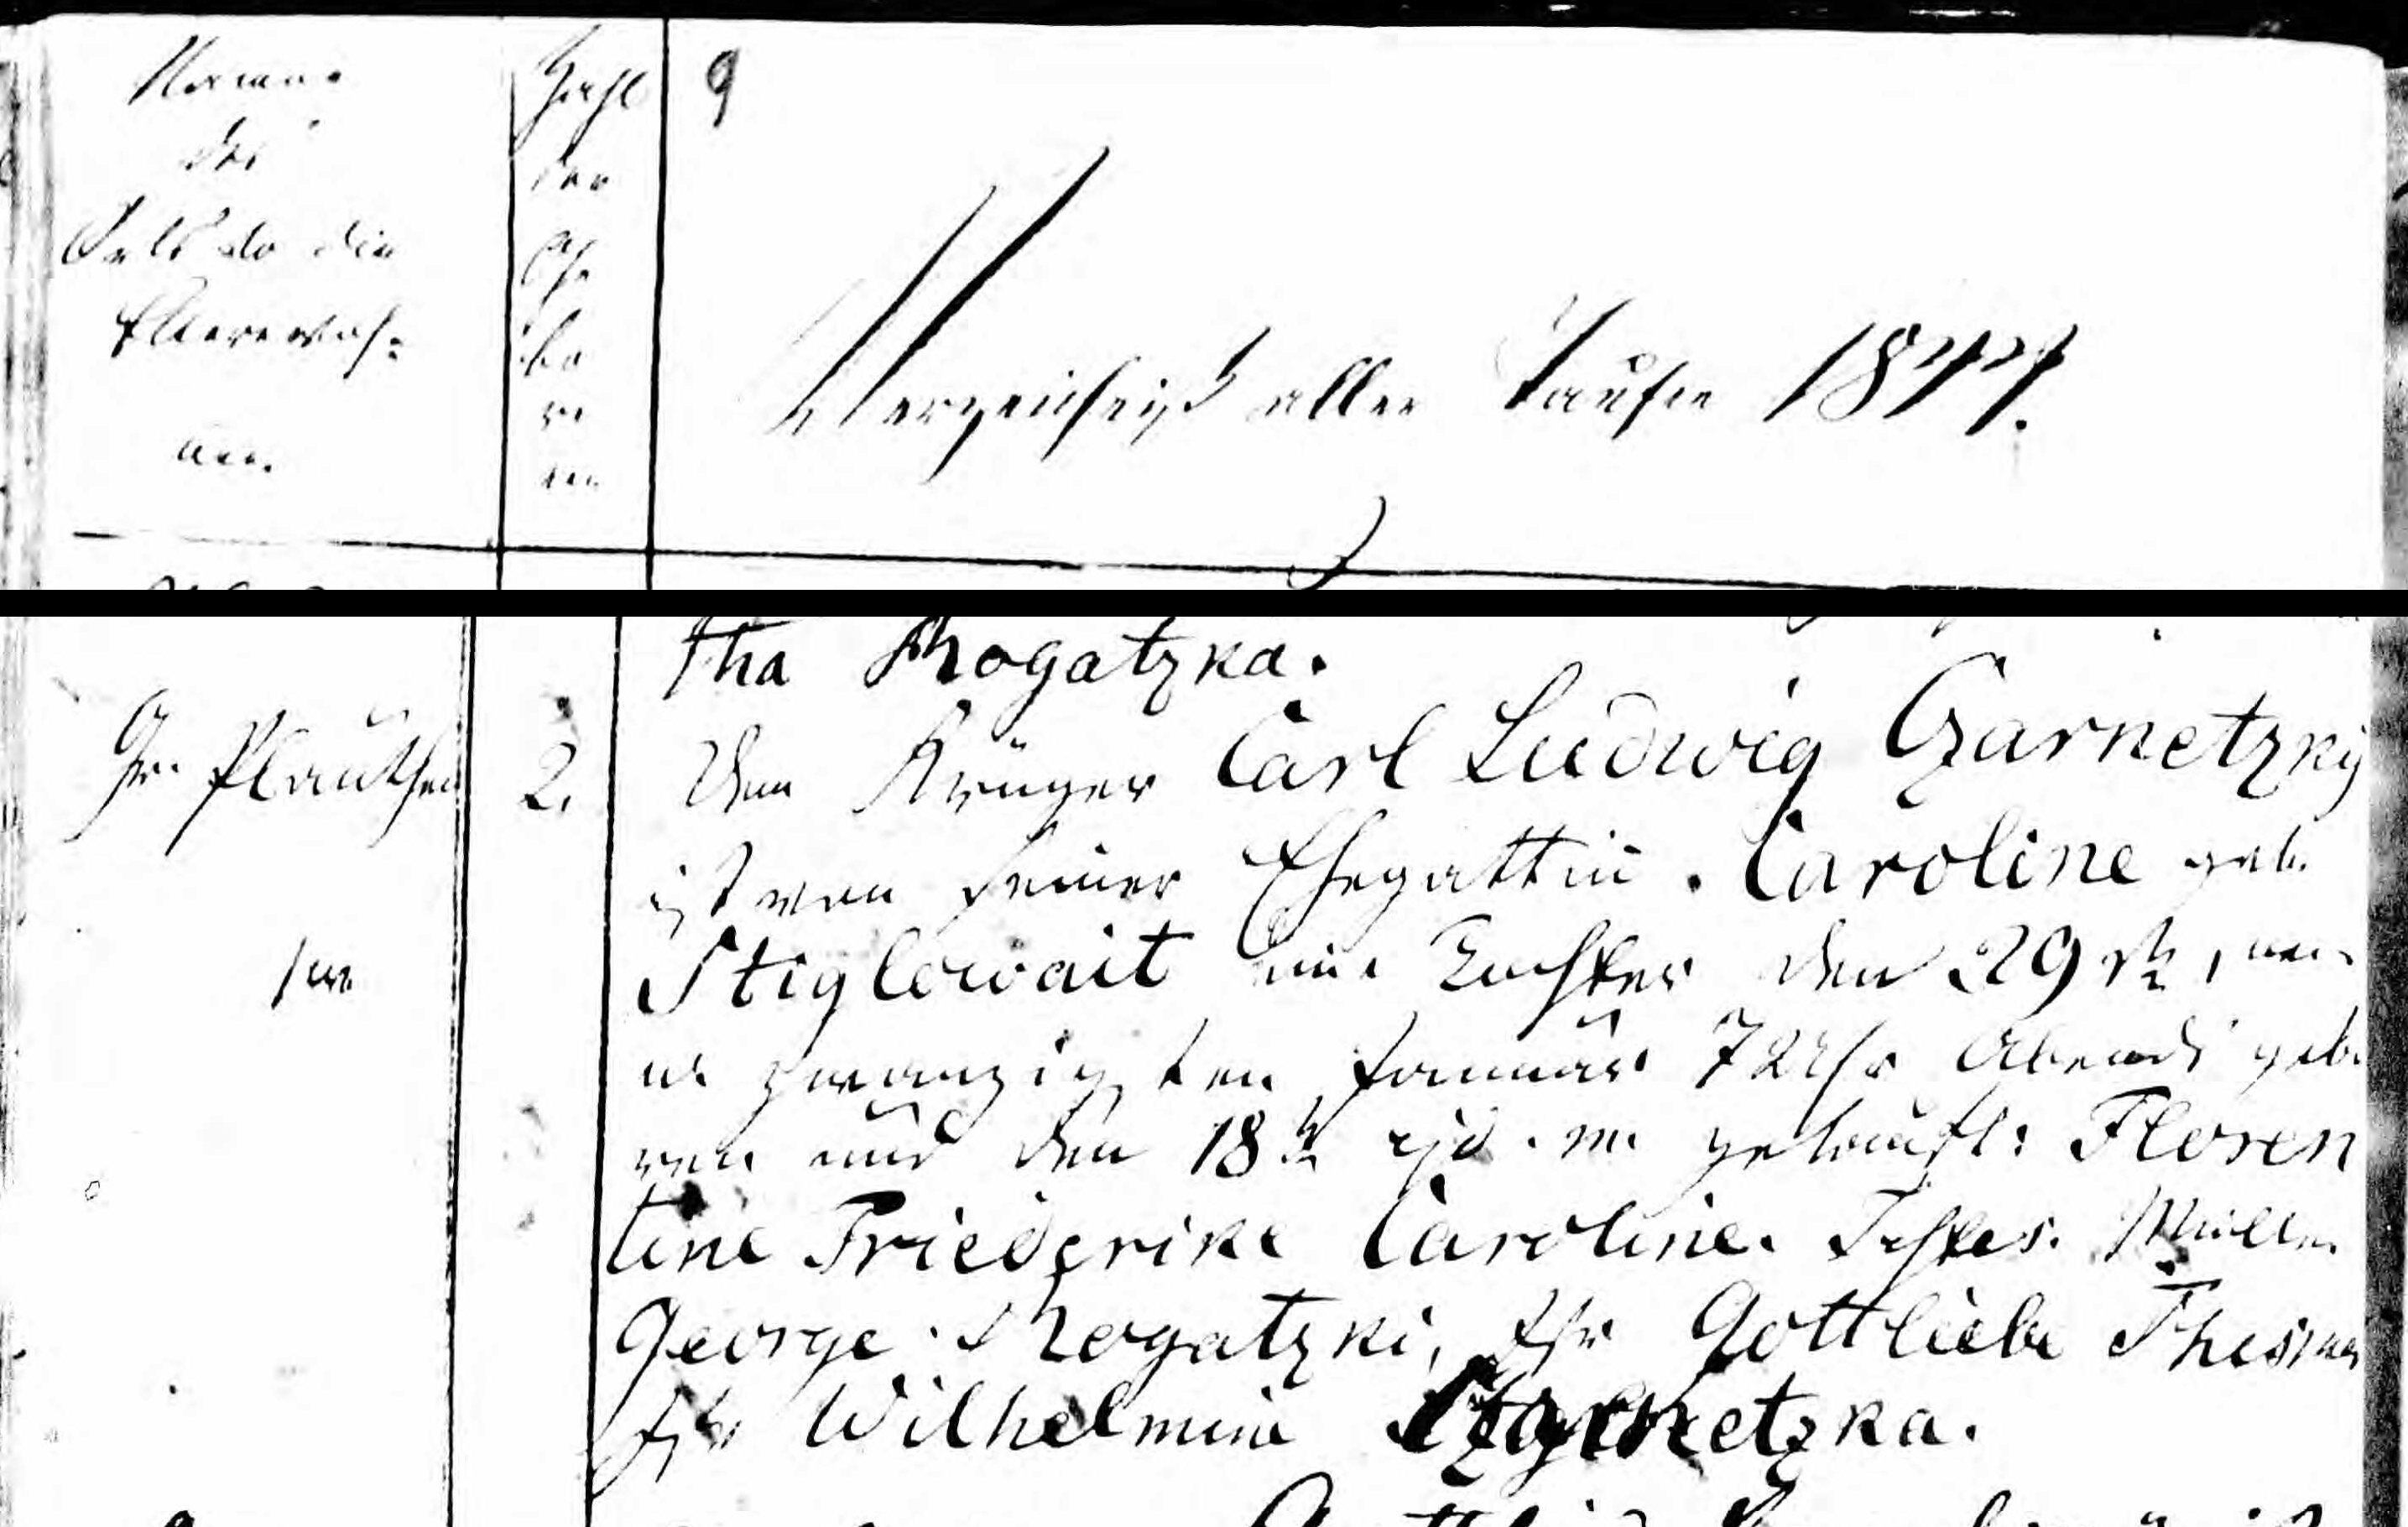 Name
des
Orts wo die
Eltern woh-
nen.
Zahl
der
Ge
bo
re
nen
9
Verzeichniß aller Taufen 1844.
tha Rogatzka.
Gr. Plauthen
2.
Dem Krüger Carl Ludwig Czarnetzky
ist von seiner Ehegattin Caroline geb.
Stiglowait eine Tochter den 29 st, neu
un zwanzigsten Januar 7 Uhr Abends gebo
ren und den 18 t ejd. m. getauft: Floren
tine Friederike Caroline. Testes. Müller
George Rogatzki, Fr Gottliebe
Fr Wilhelmine Czarnetzka.